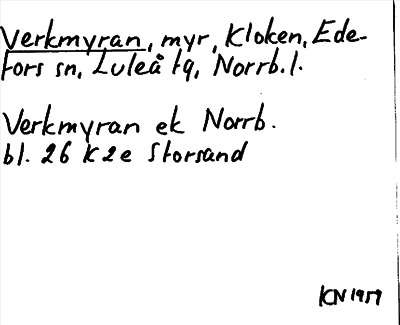 Verkmyran, myr, Kloken, Ede-
fors sn, Luleå tg, Norrb. l.
Verkmyran ek Norrb.
bl. 26 K 2 e Storsand
KN 1959